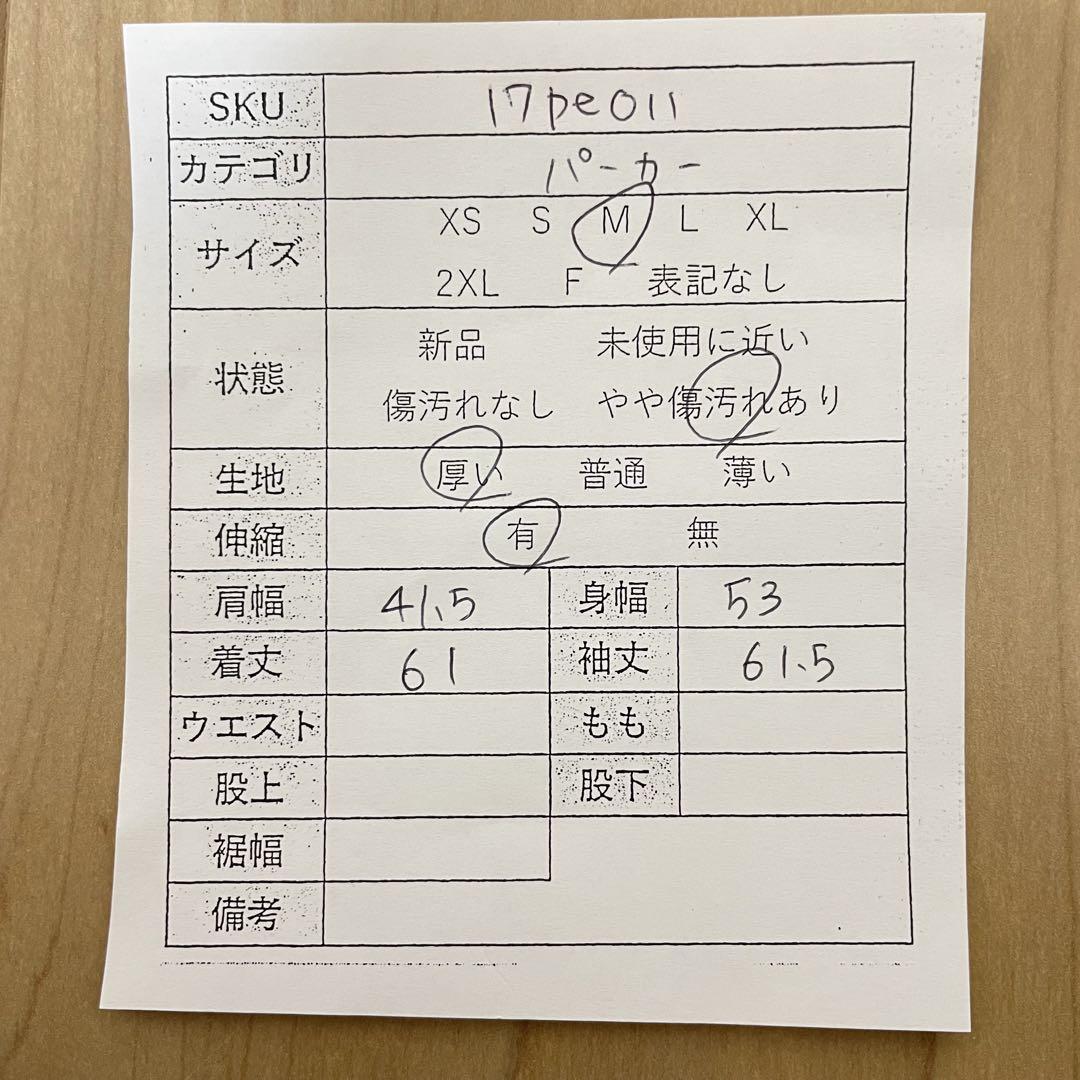 SKU 17pe011
カテゴリ パーカー
サイズ XS S M L XL
2XL F 表記なし
状態 新品 未使用に近い
傷汚れなし やや傷汚れあり
生地 厚い 普通 薄い
伸縮 有 無
肩幅 41.5 身幅 53
着丈 61 袖丈 61.5
ウエスト もも
股上 股下
裾幅
備考